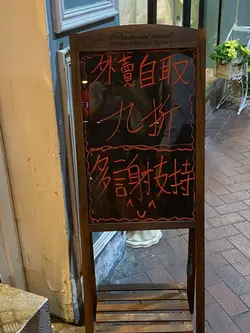 外賣自取
九折
多謝支持
^U^